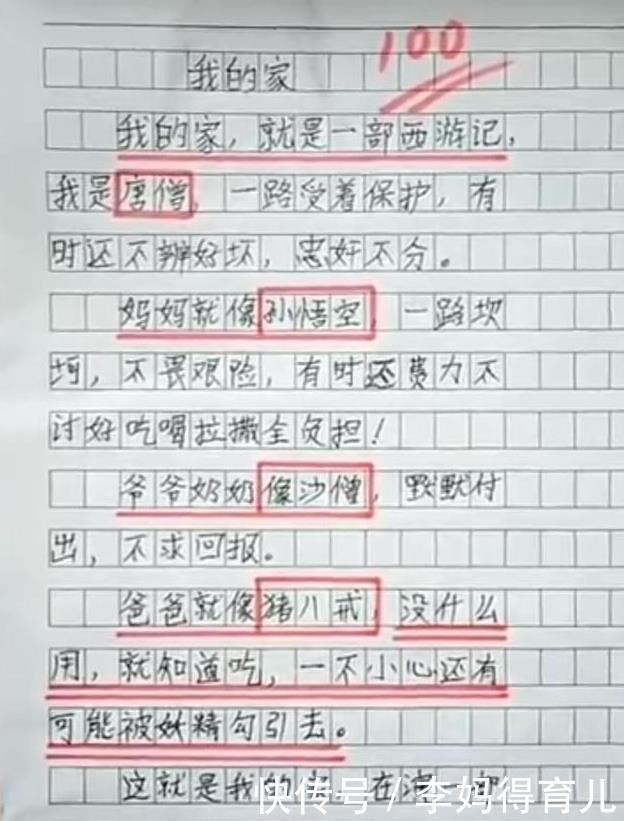 100
我的家
我的家，就是一部西游记，
我是唐僧，一路受着保护，有
时还不辨好坏，忠奸不分。
妈妈就像孙悟空，一路坎
坷，不畏艰险，有时还费力不
讨好吃喝拉撒全负担！
爷爷奶奶像沙僧，默默付
出，不求回报。
爸爸就像猪八戒，没什么
用，就知道吃，一不小心还有
可能被妖精勾引去。
这就是我的家
快传号/李妈得育儿